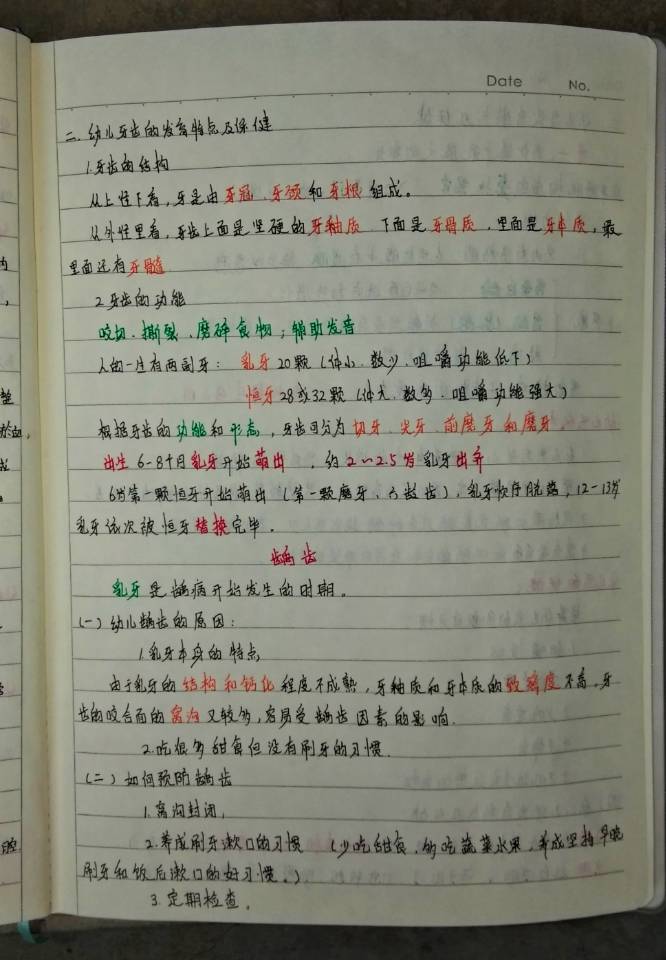 Date No.
二. 幼儿牙齿的发育特点及保健
1.牙齿的结构
从上往下看,牙是由牙冠、牙颈和牙根组成。
从外往里看,牙齿上面是坚硬的牙釉质、下面是牙骨质,里面是牙本质,最
里面还有牙髓
2.牙齿的功能
咬切、撕裂、磨碎食物;辅助发音
人的一生有两副牙: 乳牙20颗(体小、数少、咀嚼功能低下)
恒牙28或32颗(体大、数多、咀嚼功能强大)
根据牙齿的功能和形态,牙齿可分为切牙、尖牙、前磨牙和磨牙。
出生6-8个月乳牙开始萌出,约2~2.5岁乳牙出齐
6岁第一颗恒牙开始萌出(第一颗磨牙、六龄齿),乳牙按序脱落,12-13岁
乳牙依次被恒牙替换完毕。
龋齿
乳牙是龋病开始发生的时期。
(一)幼儿龋齿的原因:
1.乳牙本身的特点
由于乳牙的结构和钙化程度不成熟,牙釉质和牙本质的致密度不高,牙
齿的咬合面的窝沟又较多,容易受龋齿因素的影响.
2.吃很多甜食但没有刷牙的习惯.
(二)如何预防龋齿
1.窝沟封闭,
2.养成刷牙漱口的习惯 (少吃甜食、多吃蔬菜水果,养成坚持早晚
刷牙和饭后漱口的好习惯。)
3.定期检查。